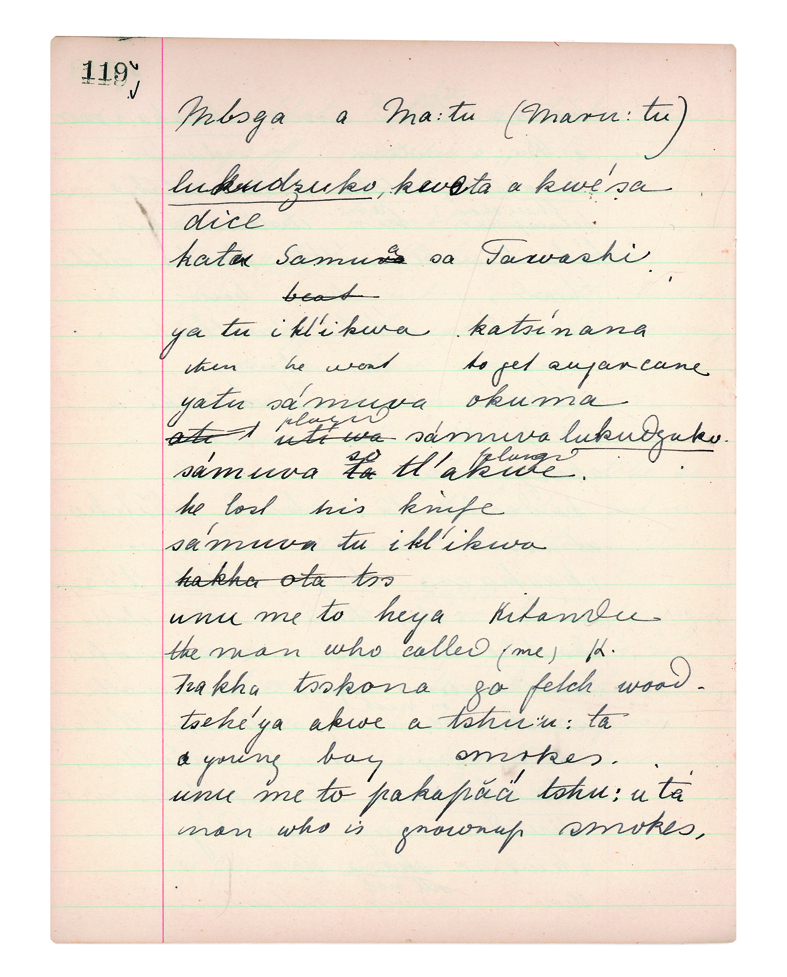 119
Mbsga a Ma:tu (Maru:tu)
lukudzuko, kweta a kwésa
dice
kata Samuva sa Tawashi
beat
ya tu ikl'ikwa katsínana
then he went to get sugarcane
yatu sámuva okuma
played
sámuva lukudzuko.
so played
sámuva ta tl'akuve.
he lost his knife
sámuva tu ikl'ikwa
hakha ota tss
unu me to heya Kitandu
the man who called (me) K.
hakha tsskona go fetch wood.
tsehé'ya akwe a tshu:u: ta
a young boy smokes.
unu me to pakapăá tshu:u tá
man who is grownup smokes.